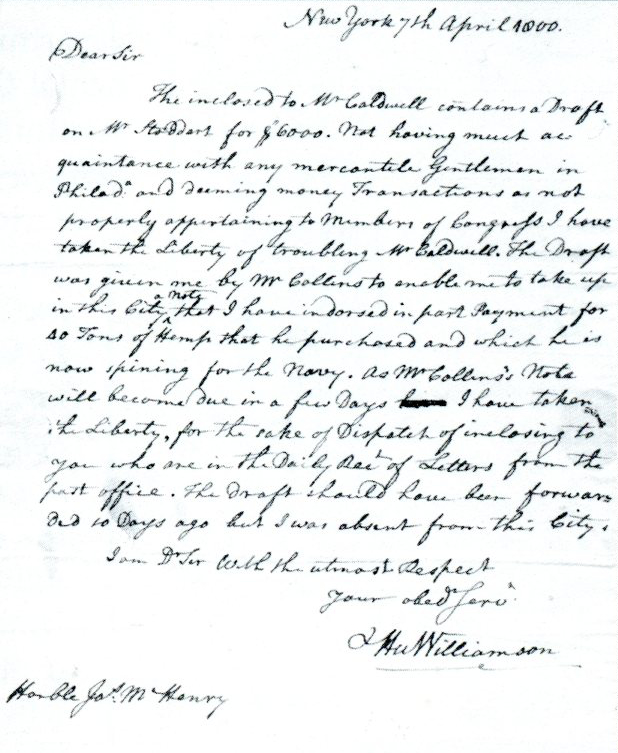 New York 7th April 1800.
Dear Sir
The inclosed to Mr Caldwell contains a Draft
on Mr Stoddert for $6000. Not having much ac-
quaintance with any mercantile Gentlemen in
Philada and deeming money Transactions as not
properly appertaining to Members of Congress I have
taken the Liberty of troubling Mr Caldwell. The Draft
was given me by Mr Collins to enable me to take up
in this City a Note that I have indorsed in part Payment for
40 Tons of Hemp that he purchased and which he is
now spining for the Navy. As Mr Collins's Note
will become due in a few Days I have taken
the Liberty, for the sake of Dispatch of inclosing to
you who are in the Daily Rect of Letters from the
post office. The draft should have been forwar=
ded 10 Days ago but I was absent from this City.
I am Dr Sir With the utmost Respect
your obedt Servt
Hu Williamson
Honble Jas. McHenry